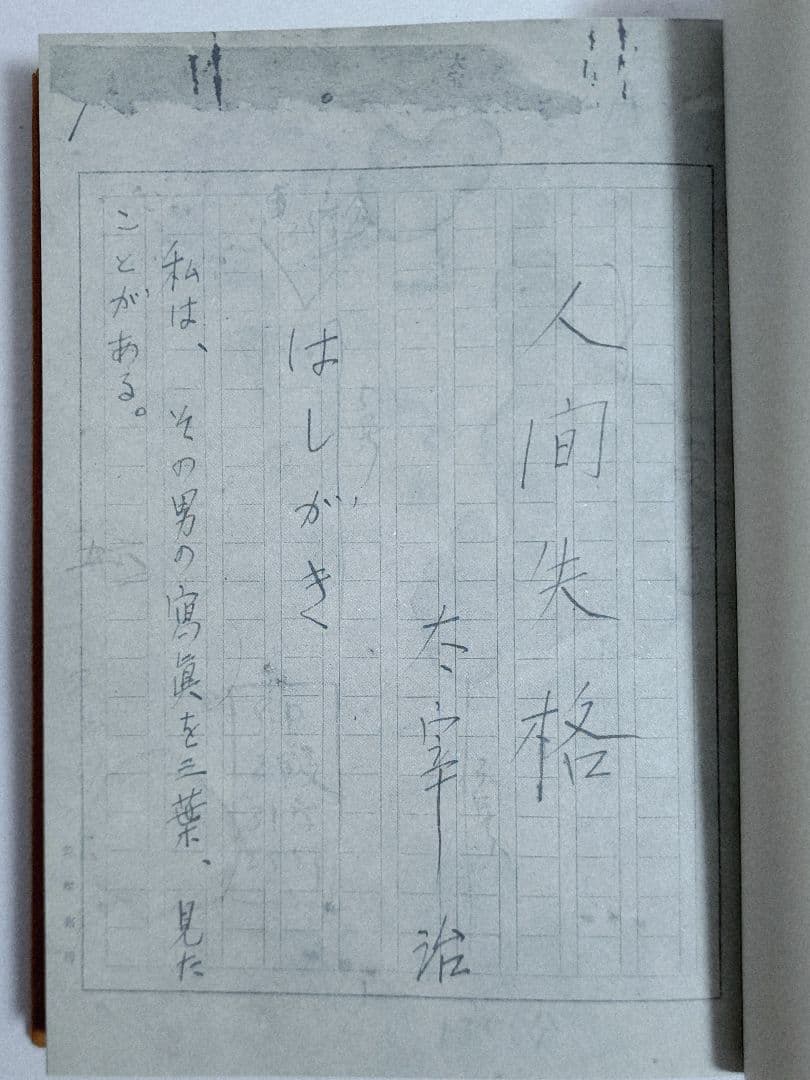 人間失格
太宰治
はしがき
私は、その男の寫眞を三葉、見た
ことがある。